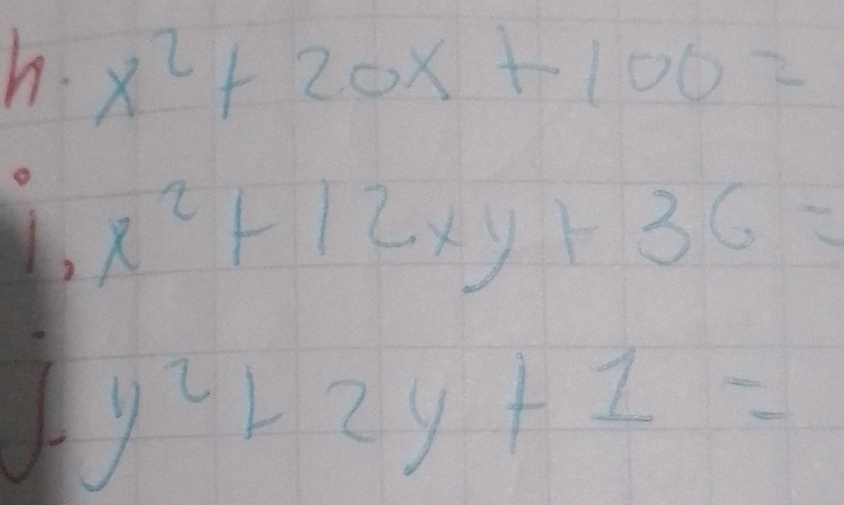 h. x² + 20x + 100 =
i. x² + 12xy + 36 =
j. y² + 2y + 1 =